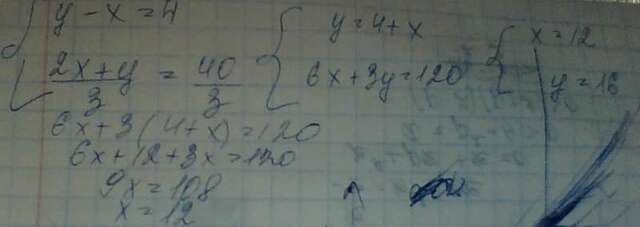 y - x = 4
y = 4 + x
x = 12
2x + y / 3 = 40 / 3
6x + 3y = 120
y = 16
6x + 3(4 + x) = 120
6x + 12 + 3x = 120
9x = 108
x = 12